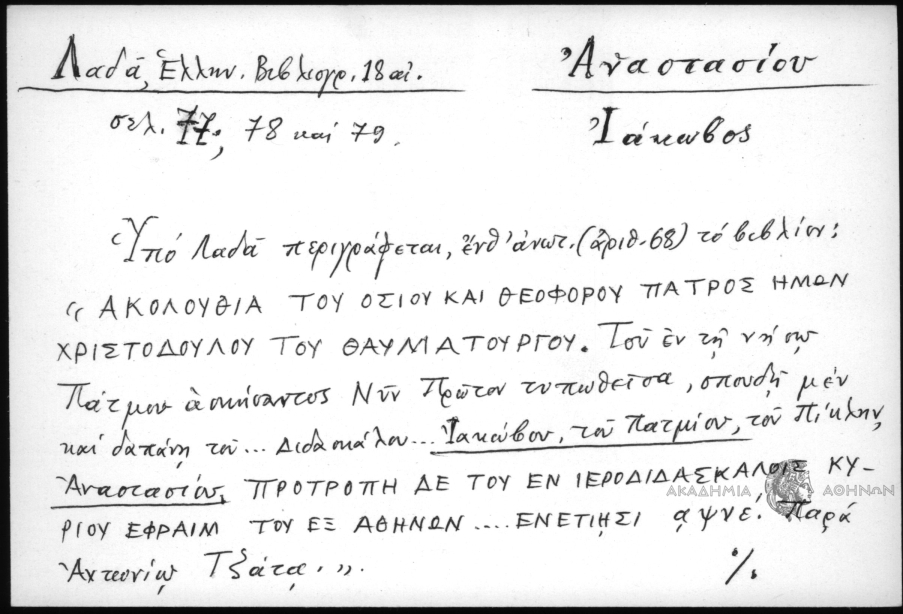 Λαδᾶ, Ἑλλην. Βιβλιογρ. 18 αἰ.
Ἀναστασίου
σελ. 77, 78 καί 79.
Ἰάκωβος
Ὑπό Λαδᾶ περιγράφεται, ἔνθ' ἀνωτ. (ἀριθ. 68) τό βιβλίον:
« ΑΚΟΛΟΥΘΙΑ ΤΟΥ ΟΣΙΟΥ ΚΑΙ ΘΕΟΦΟΡΟΥ ΠΑΤΡΟΣ ΗΜΩΝ
ΧΡΙΣΤΟΔΟΥΛΟΥ ΤΟΥ ΘΑΥΜΑΤΟΥΡΓΟΥ. Τοῦ ἐν τῇ νήσῳ
Πάτμου ἀσκήσαντος Νῦν Πρῶτον τυπωθεῖσα, σπουδῇ μέν
καί δαπάνῃ τοῦ... Διδασκάλου... Ἰακώβου, τοῦ Πατμίου, τοῦ Πίκλην
Ἀναστασίου, ΠΡΟΤΡΟΠΗ ΔΕ ΤΟΥ ΕΝ ΙΕΡΟΔΙΔΑΣΚΑΛΟΙΣ ΚΥ-
ΑΚΑΔΗΜΙΑ ΑΘΗΝΩΝ
ΡΙΟΥ ΕΦΡΑΙΜ ΤΟΥ ΕΞ ΑΘΗΝΩΝ .... ΕΝΕΤΙΗΣΙ αψνέ. Παρά
Ἀντωνίῳ Τζάτα. ».
%.